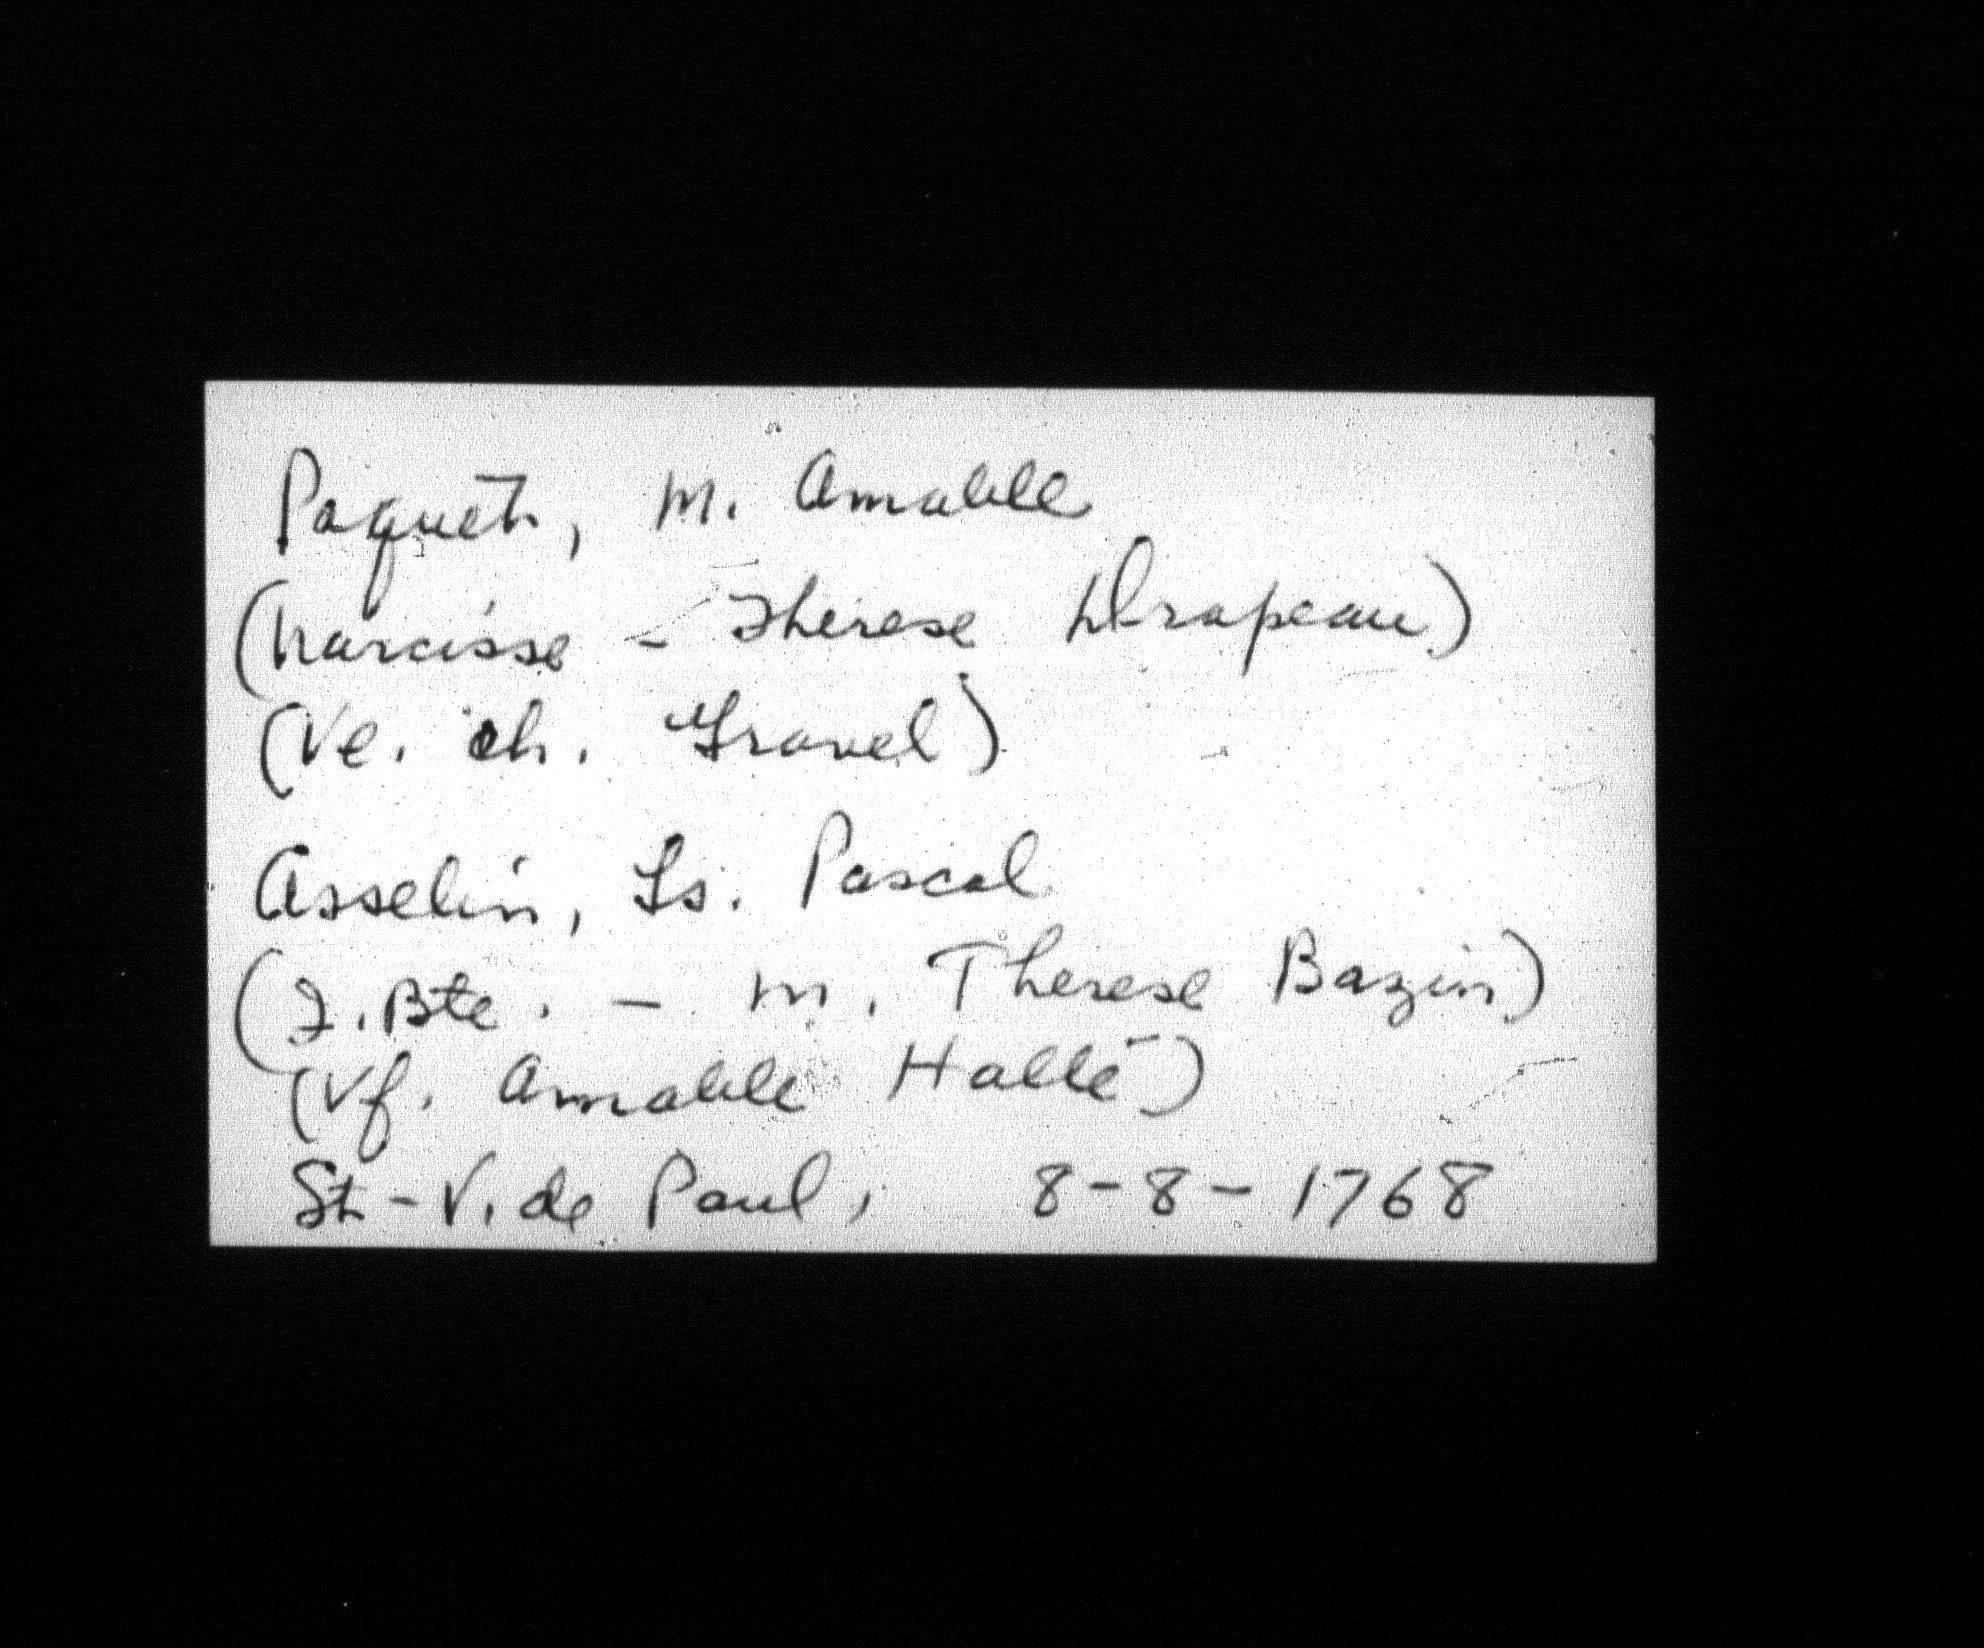 Paquet, M. Amable
(Narcisse - Therese Drapeau)
(Ve. Ch. Gravel)
Asselin, Ls. Pascal
(J. Bte. - M. Therese Bazin)
(Vf. Amable Hallé)
St-V. de Paul, 8-8-1768